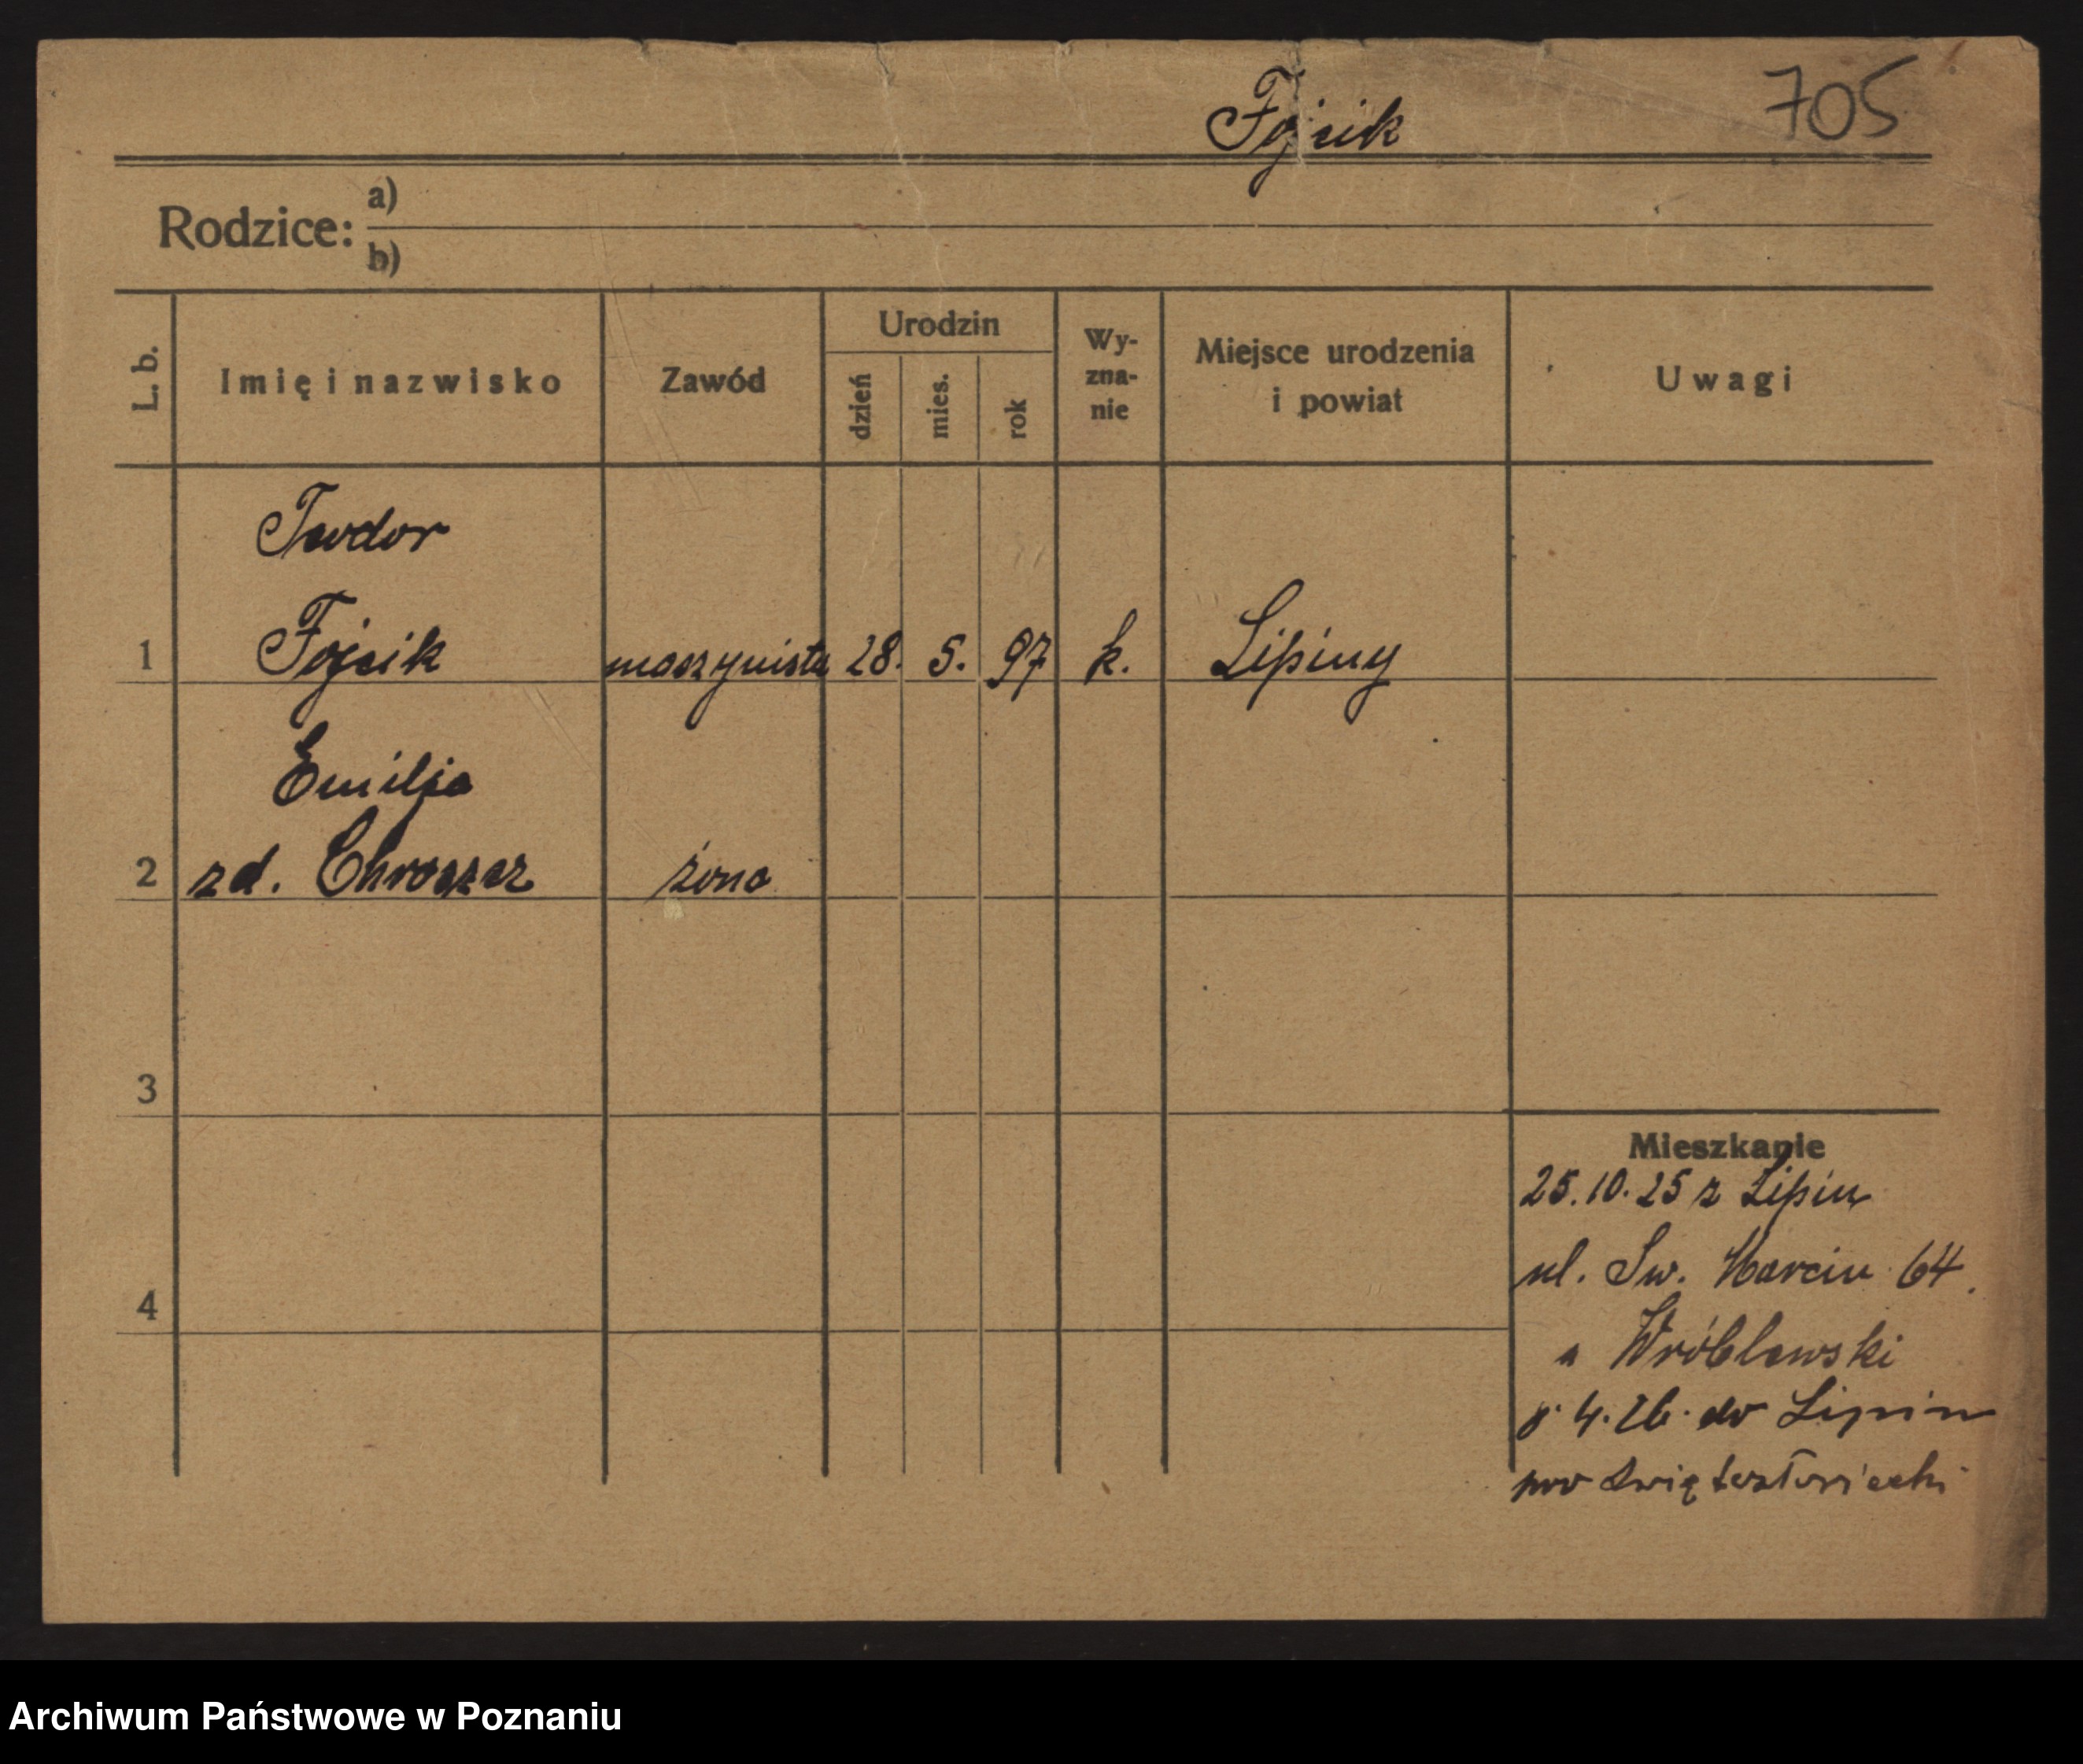 Fojcik 705
Rodzice: a)
b)
L. b. Imię i nazwisko Zawód Urodzin dzień mies. rok Wy-zna-nie Miejsce urodzenia i powiat Uwagi
Teodor
1 Fojcik maszynista 28. 5. 97 k. Lipiny
Emilja
2 zd. Chroszcz żona
3
Mieszkanie
25.10.25 z Lipin
ul. Św. Marcin 64.
4
Wróblewski
4. 26. do Lipin
Archiwum Państwowe w Poznaniu